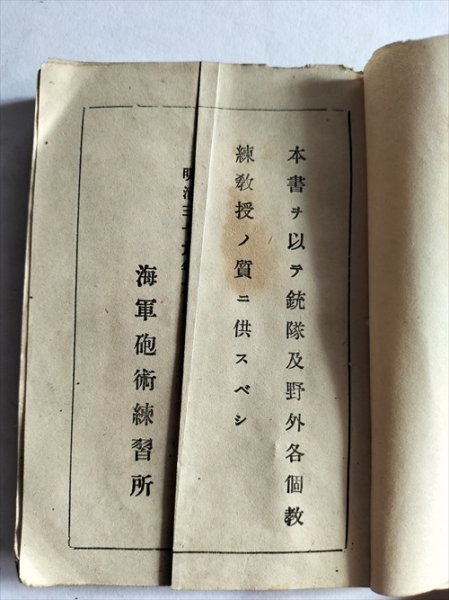 本書ヲ以テ銃隊及野外各個教
練教授ノ質ニ供スベシ
明治三十
海軍砲術練習所